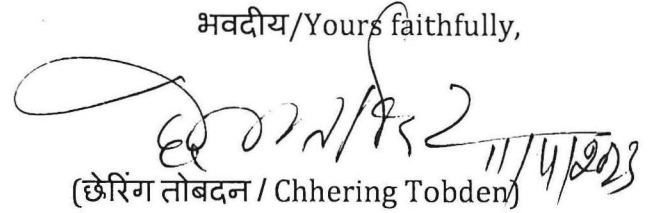 भवदीय/Yours faithfully,
11/4/2023
(छेरिंग तोबदन / Chhering Tobden)